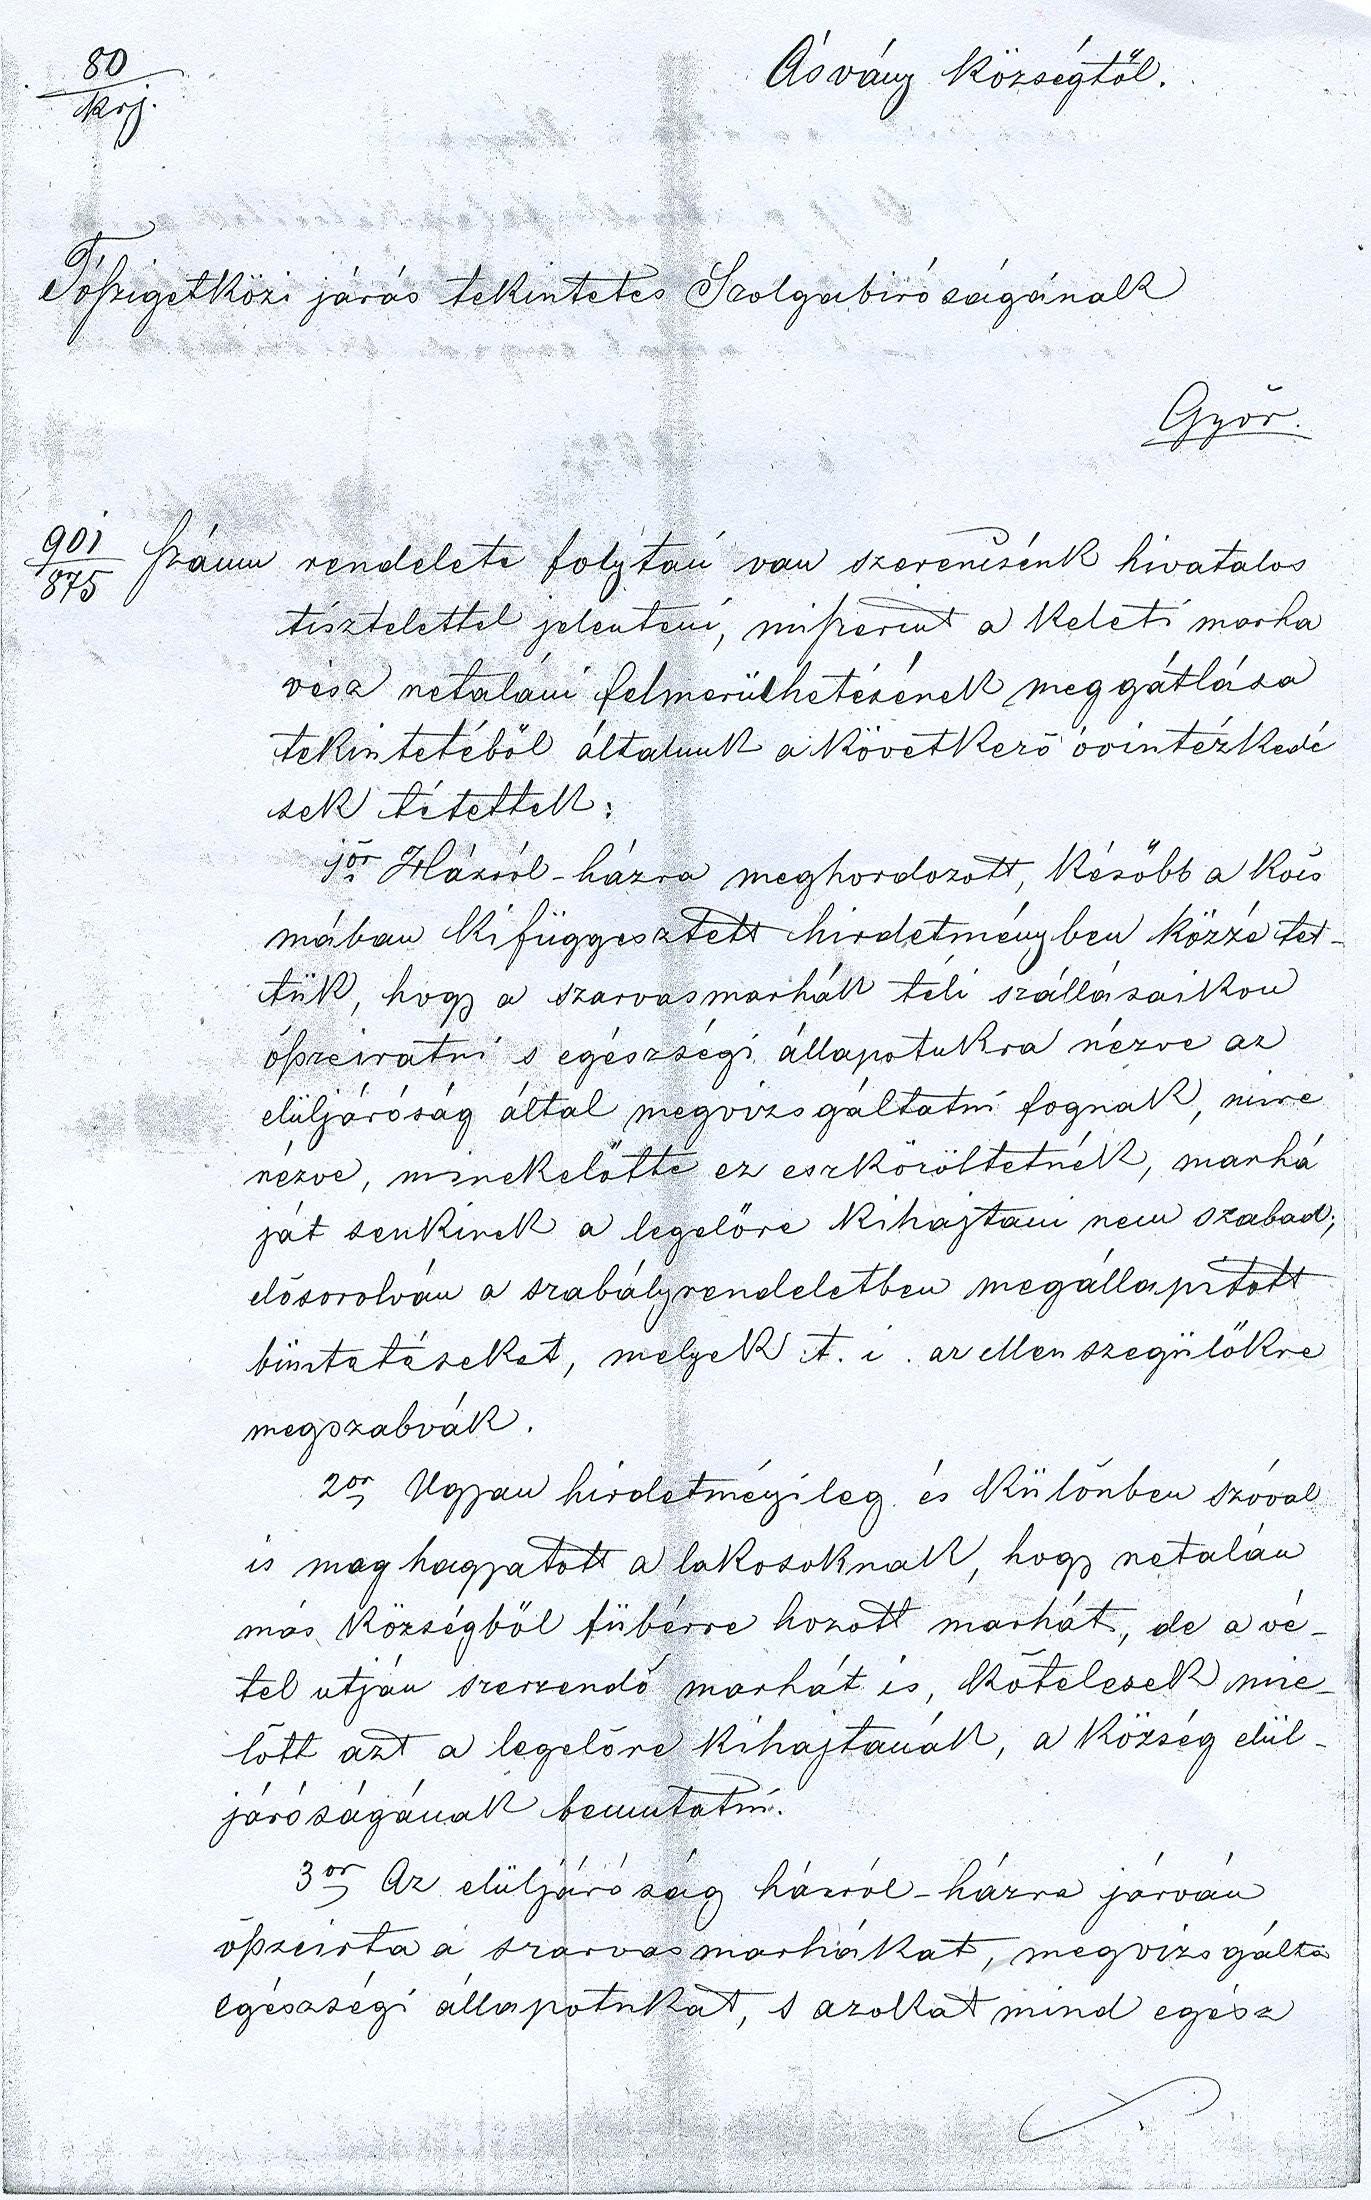 80
krj.
Ásvány Községtől.
Tószigetközi járás tekintetes Szolgabiróságának
Győr.
901
875
számu rendelete folytán van szerencsénk hivatalos
tisztelettel jelenteni, miszerint a keleti marha
vész netaláni felmerülhetésének meggátlása
tekintetéből általunk a következő óvintézkedé
sek tétettek:
1ör Házról-házra meghordozott, később a kocs
mában kifüggesztett hirdetményben közzé tet-
tük, hogy a szarvasmarhák téli szállásaikon
összeiratni s egészségi állapotukra nézve az
elüljáróság által megvizsgáltatni fognak, mire
nézve, minekelőtte ez eszközöltetnék, marhá
ját senkinek a legelőre kihajtani nem szabad;
elősorolván a szabályrendeletben megállapitott
büntetéseket, melyek t. i. az ellenszegülőkre
megszabvák.
2or Ugyan hirdetményileg és különben szóval
is meghagyatott a lakosoknak, hogy netalán
más községből fübérre hozott marhát, de a vé-
tel utján szerzendő marhát is, kötelesek mie-
lőtt azt a legelőre kihajtanák, a község elül-
járóságának bemutatni.
3or Az elüljáróság házról-házra járván
összeirta a szarvasmarhákat, megvizsgálta
egészségi állapotukat, s azokat mind egész